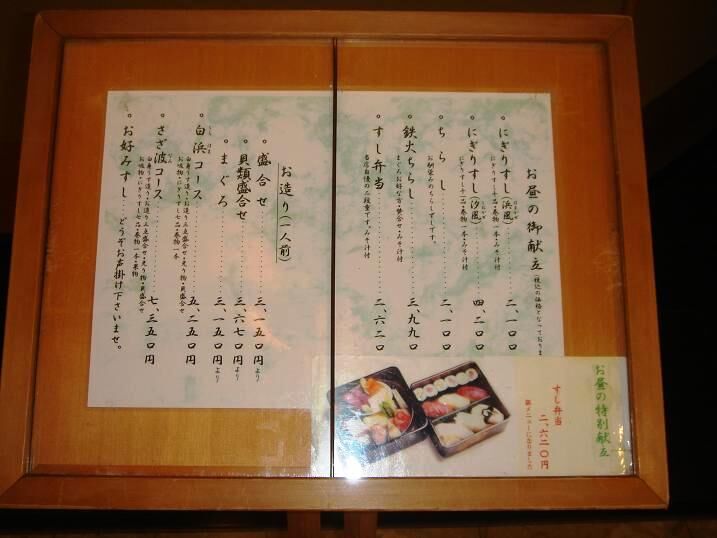 お昼の御献立(税込の価格となっておりま
。にぎりすし(浜風)………二、一〇〇
にぎりすし十品・巻物一本・みそ汁付
。にぎりすし(汐風)………四、二〇〇
にぎりすし十一品・巻物一本・みそ汁付
。ちらし………二、一〇〇
お馴染みのちらしずしです。みそ汁付
。鉄火ちらし………三、九九〇
まぐろお好きな方・貝合せ・みそ汁付
。すし弁当………二、六二〇
当店自慢の二段重です。みそ汁付
お造り(一人前)
。盛合せ………三、一五〇円より
。貝類盛合せ………三、六七〇円より
。まぐろ………三、一五〇円より
。白浜コース………五、二五〇円
。さざ波コース………七、三五〇円
。お好みすし…どうぞお声掛け下さいませ。
お昼の特別献立
すし弁当
二、六二〇円
新メニューになりました